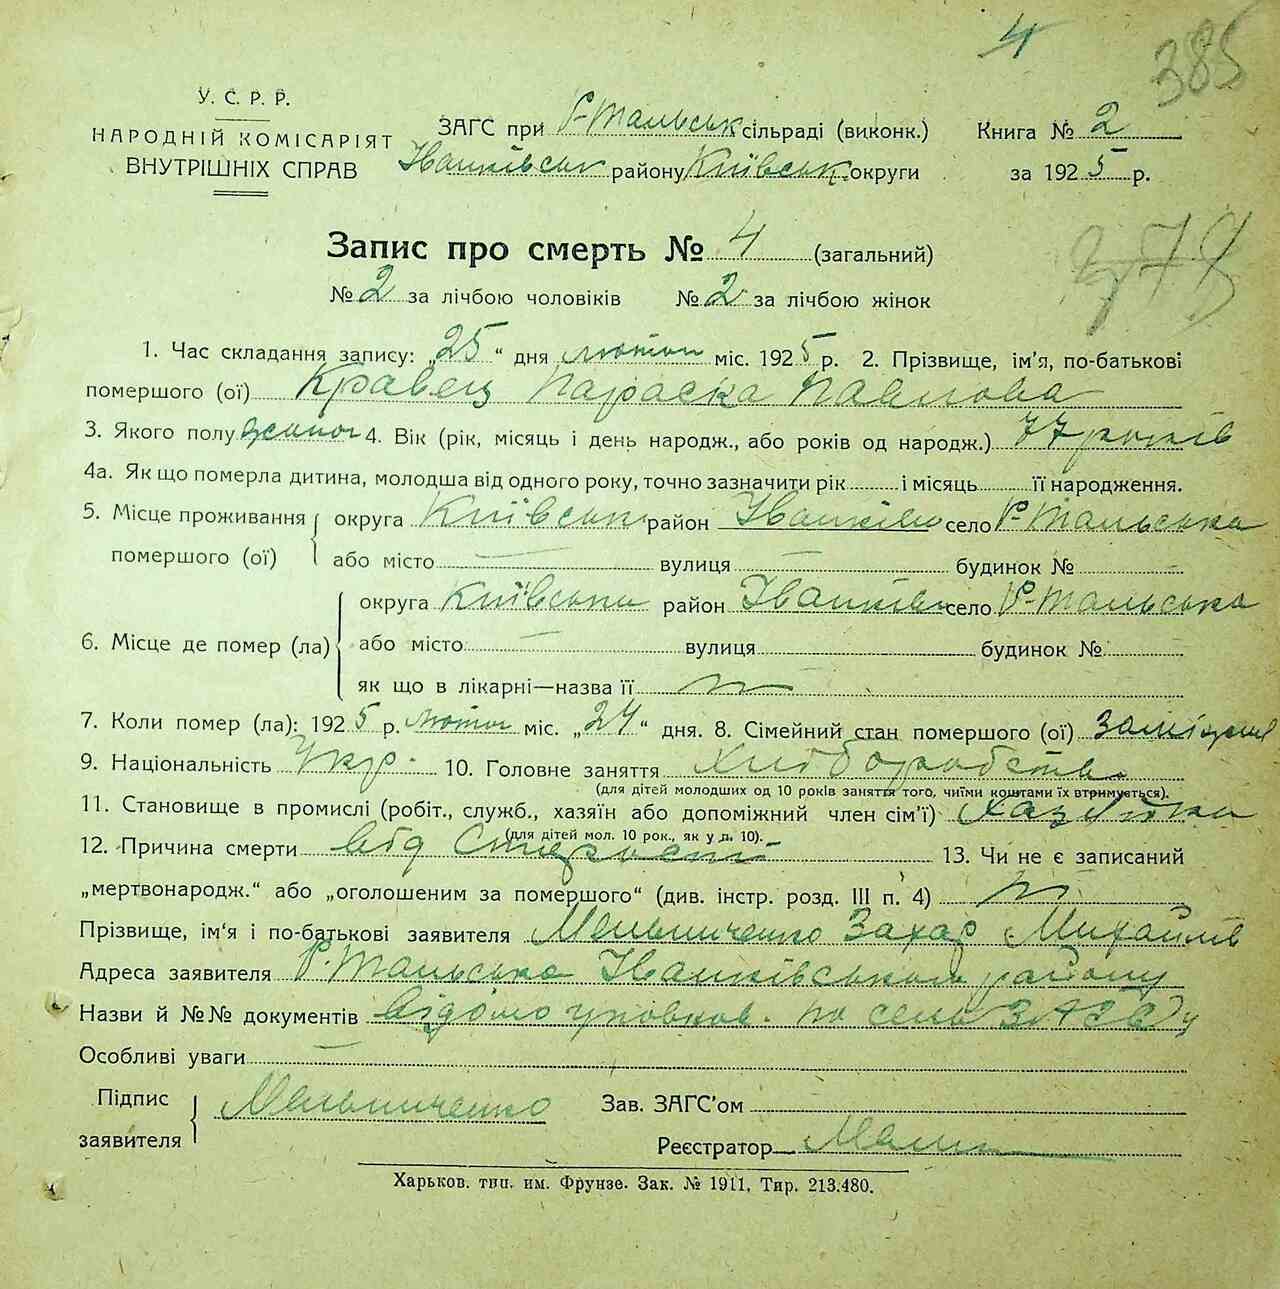 4
385
У. С. Р. Р.
НАРОДНІЙ КОМІСАРІЯТ
ВНУТРІШНІХ СПРАВ
ЗАГС при Р-Тальськ сільраді (виконк.)
Іванківськ району Київськ. округи
Книга № 2
за 1925 р.
Запис про смерть № 4 (загальний)
378
№ 2 за лічбою чоловіків № 2 за лічбою жінок
1. Час складання запису: „25“ дня лютого міс. 1925 р. 2. Прізвище, ім’я, по-батькові
помершого (ої) Кравец Параска Павлова
3. Якого полу жіноч 4. Вік (рік, місяць і день народж., або років од народж.) 77 років
4а. Як що померла дитина, молодша від одного року, точно зазначити рік і місяць її народження.
5. Місце проживання помершого (ої) округа Київськ район Іванків село Р-Тальська
або місто вулиця будинок №
6. Місце де помер (ла) округа Київська район Іванків село Р-Тальська
або місто вулиця будинок №
як що в лікарні—назва її
7. Коли помер (ла): 1925 р. лютого міс. „24“ дня. 8. Сімейний стан помершого (ої) заміжня
9. Національність Укр. 10. Головне заняття Хліборобств
(для дітей молодших од 10 років заняття того, чиїми коштами їх втримується).
11. Становище в промислі (робіт., служб., хазяїн або допоміжний член сім’ї) Хазяйка
(для дітей мол. 10 рок., як у п. 10).
12. Причина смерти від Старості 13. Чи не є записаний
„мертвонародж.“ або „оголошеним за помершого“ (див. інстр. розд. III п. 4)
Прізвище, ім’я і по-батькові заявителя Мельниченко Захар Михайлів
Адреса заявителя Р.Тальська Іванківського району
Назви й №№ документів відомо уповнов. по селу ЗАГСу
Особливі уваги
Підпис заявителя Мельниченко
Зав. ЗАГС’ом
Реєстратор
Харьков. тип. им. Фрунзе. Зак. № 1911, Тир. 213.480.